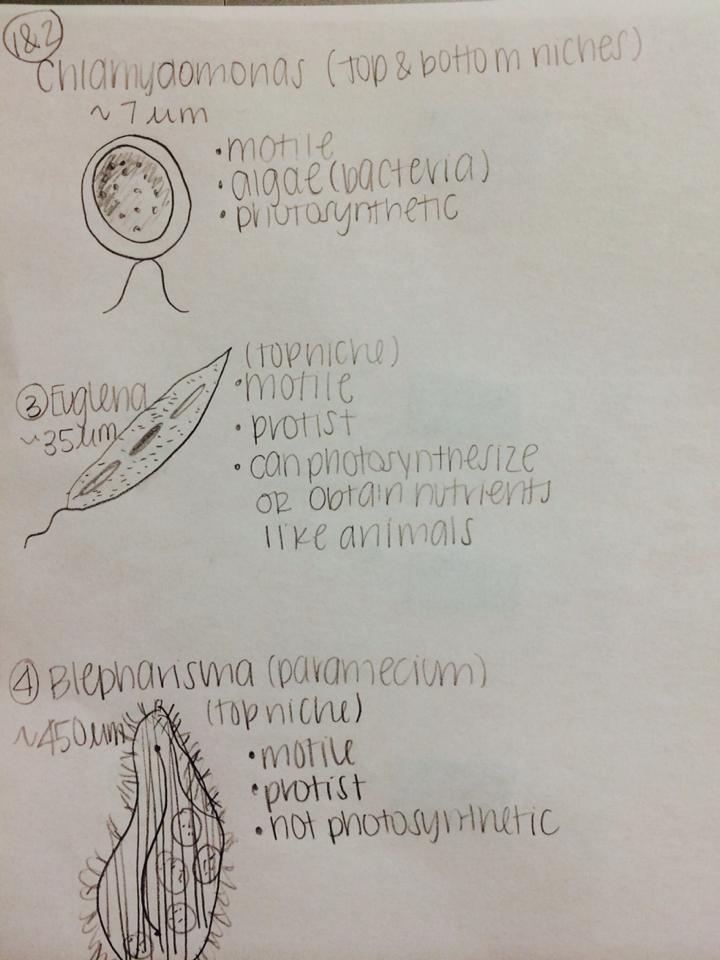 1&2
Chlamydomonas (top & bottom niches)
~7 um
• motile
• algae (bacteria)
• photosynthetic
(top niche)
③ Euglena
• motile
~35 um
• protist
• can photosynthesize
or obtain nutrients
like animals
④ Blepharisma (paramecium)
(top niche)
~450 um
• motile
• protist
• not photosynthetic